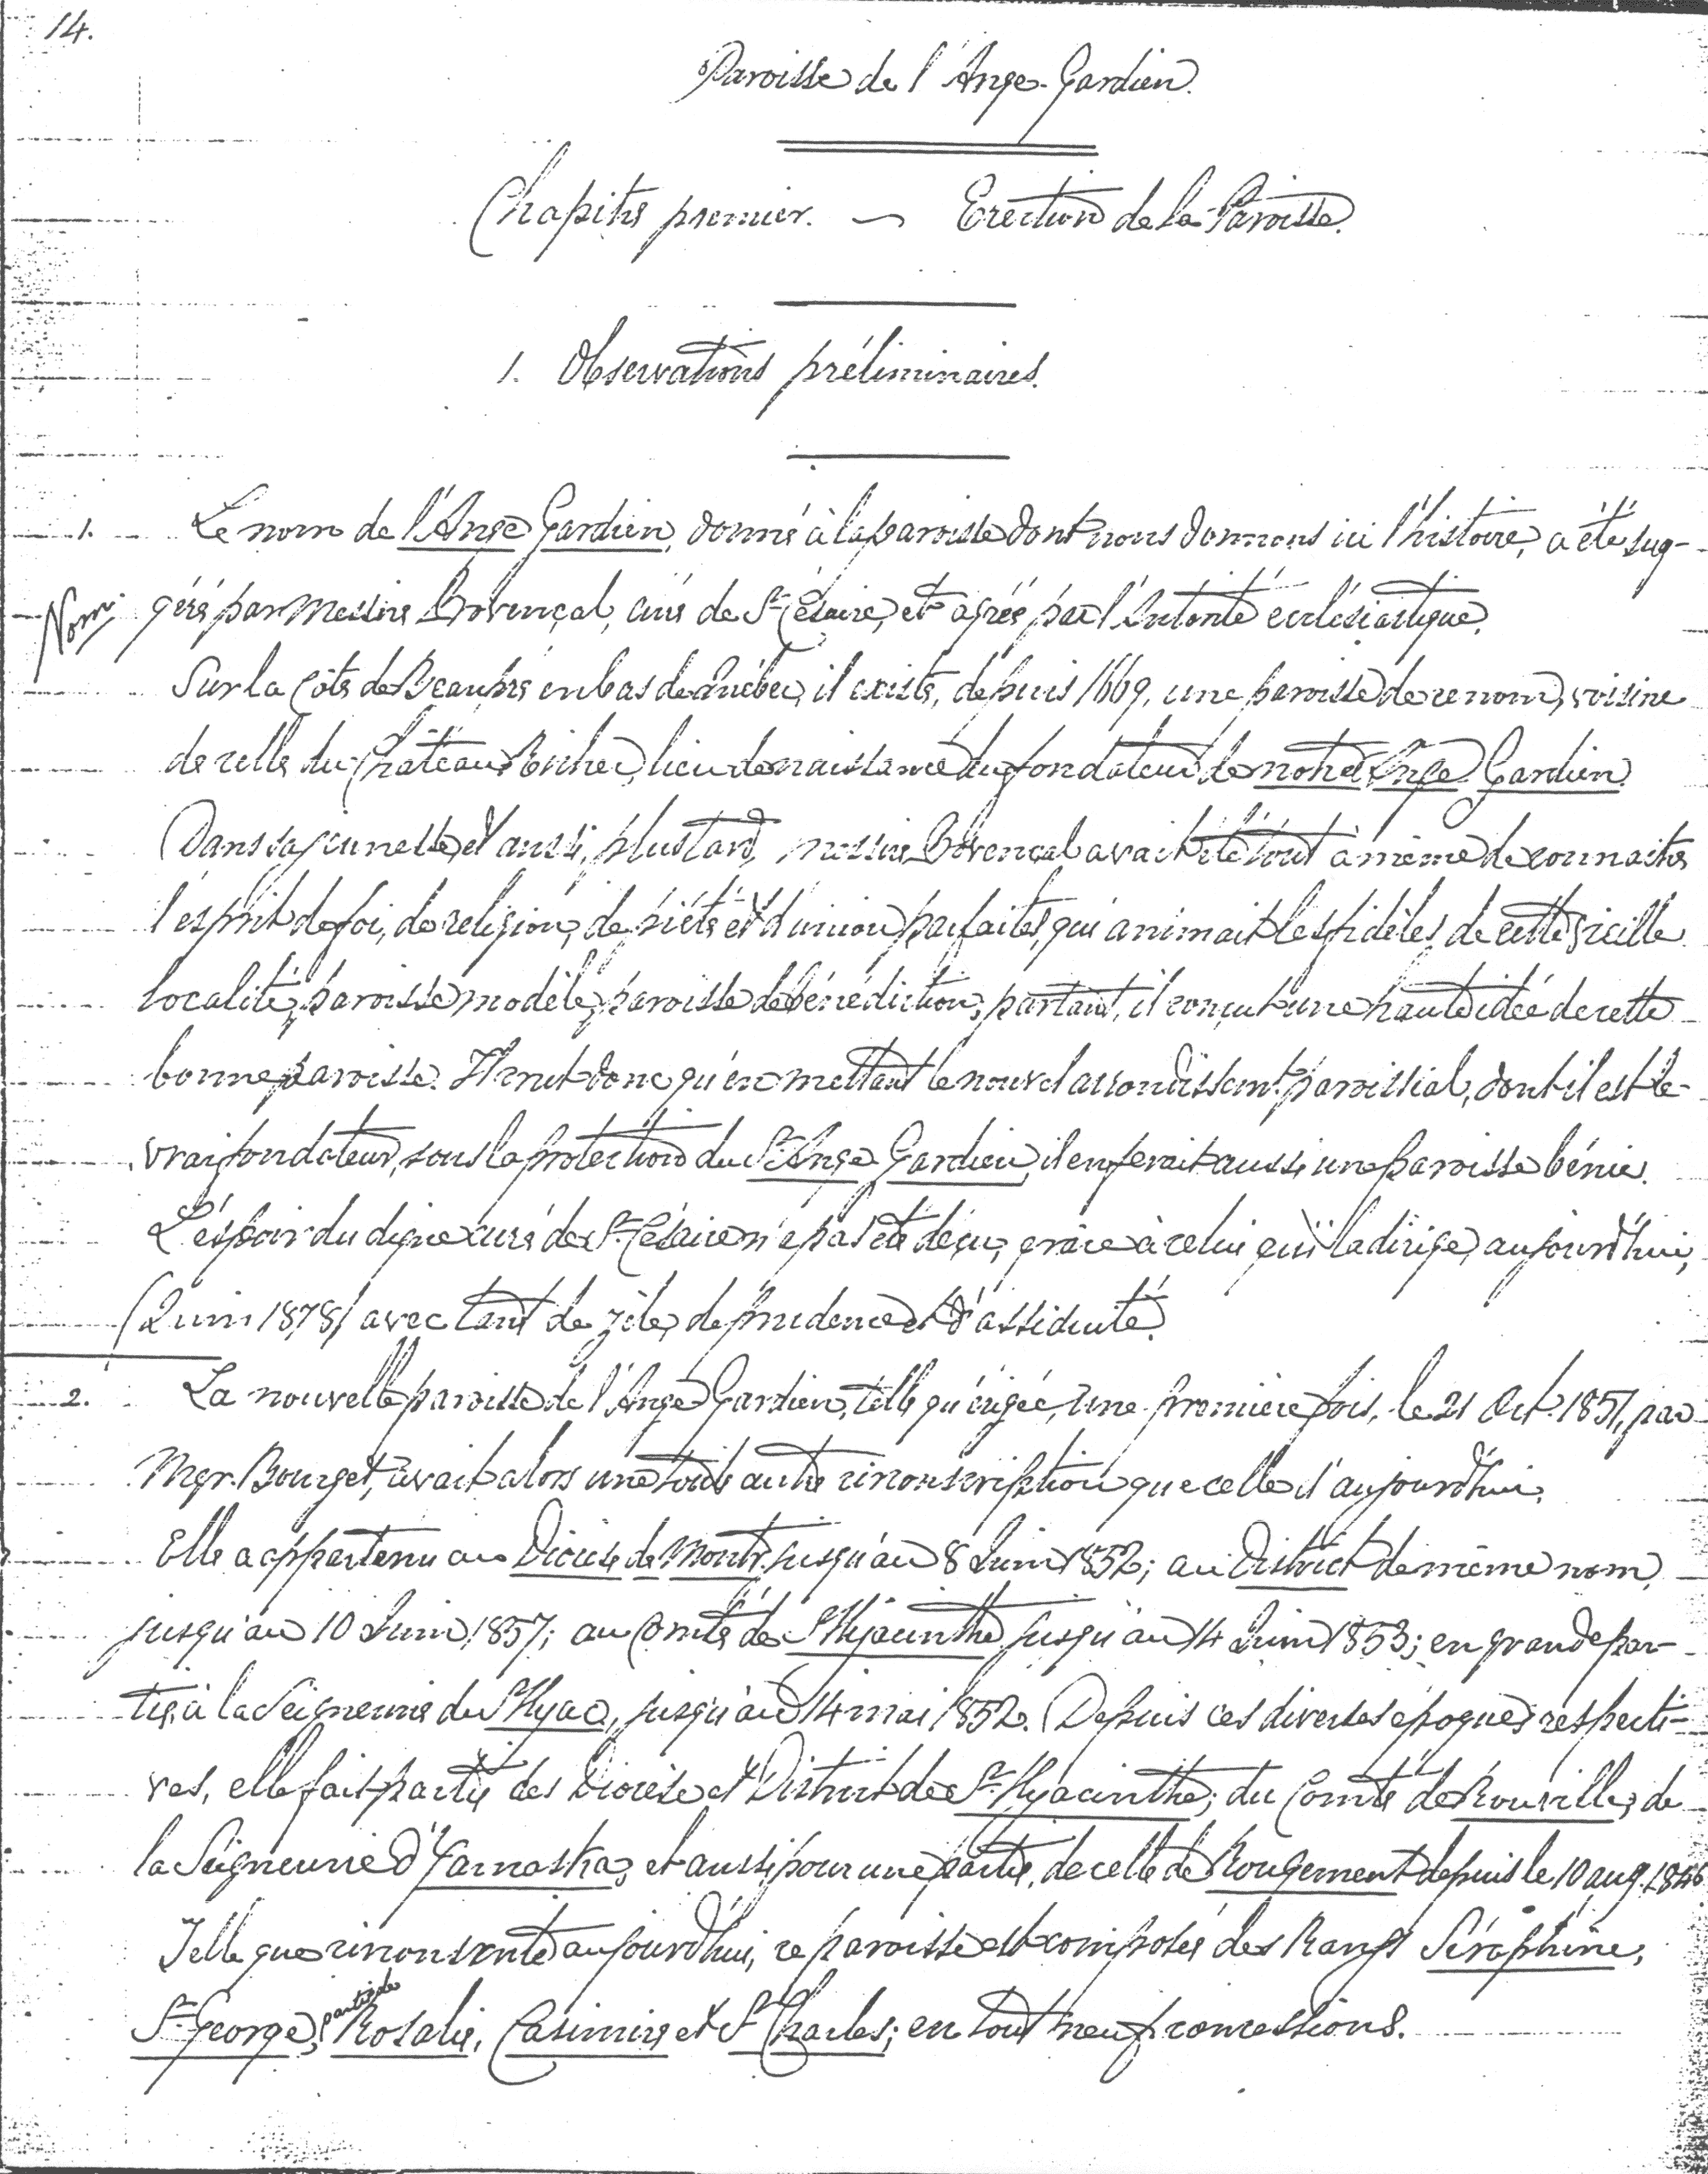 14.
Paroisse de l'Ange-Gardien.
Chapitre premier. — Erection de la Paroisse.
1. Observations préliminaires.
1. Le nom de l'Ange Gardien, donné à la paroisse dont nous donnons ici l'histoire, a été sug-
Nom. géré par Messire Provençal, curé de St Césaire, et agréé par l'Autorité ecclésiastique.
Sur la Côte de Beaupré en bas de Québec, il existe, depuis 1669, une paroisse de ce nom, voisine
de celle du Château Richer, lieu de naissance du fondateur de notre Ange Gardien.
Dans sa jeunesse, et aussi, plus tard, messire Provençal avait été tout à même de connaitre
l'esprit de foi, de religion, de piété et d'union parfaites, qui animait les fidèles de cette vieille
localité, paroisse modèle, paroisse de bénédiction; partant, il conçut une haute idée de cette
bonne paroisse. Il crut donc qu'en mettant le nouvel arrondissemt. paroissial, dont il est le
vrai fondateur, sous la protection du St Ange Gardien, il en ferait aussi une paroisse bénie.
L'espoir du digne curé de St Césaire n'a pas été déçu, grâce à celui qui la dirige, aujourd'hui,
(Juin 1878) avec tant de zèle, de prudence et d'assiduité.
2. La nouvelle paroisse de l'Ange Gardien, telle qu'érigée, une première fois, le 21 Oct. 1851, par
Mgr. Bourget, avait alors une toute autre circonscription que celle d'aujourd'hui.
Elle a appartenu au Diocèse de Montr. jusqu'au 8 Juin 1852; au District de même nom,
jusqu'au 10 Juin 1857; au Comté de St Hyacinthe jusqu'au 14 Juin 1853; en grande par-
tie, à la Seigneurie de St Hyac., jusqu'au 14 mai 1852. Depuis ces diverses époques respecti-
ves, elle fait partie des Diocèse et District de St Hyacinthe; du Comté de Rouville; de
la Seigneurie d'Yamaska, et aussi pour une partie, de celle de Rougemont depuis le 10 aug. 1846
Telle que circonscrite aujourd'hui, ce paroisse est composée des Rangs Séraphine,
St George, partie de Rosalie, Casimire et St Charles; en tout neuf concessions.